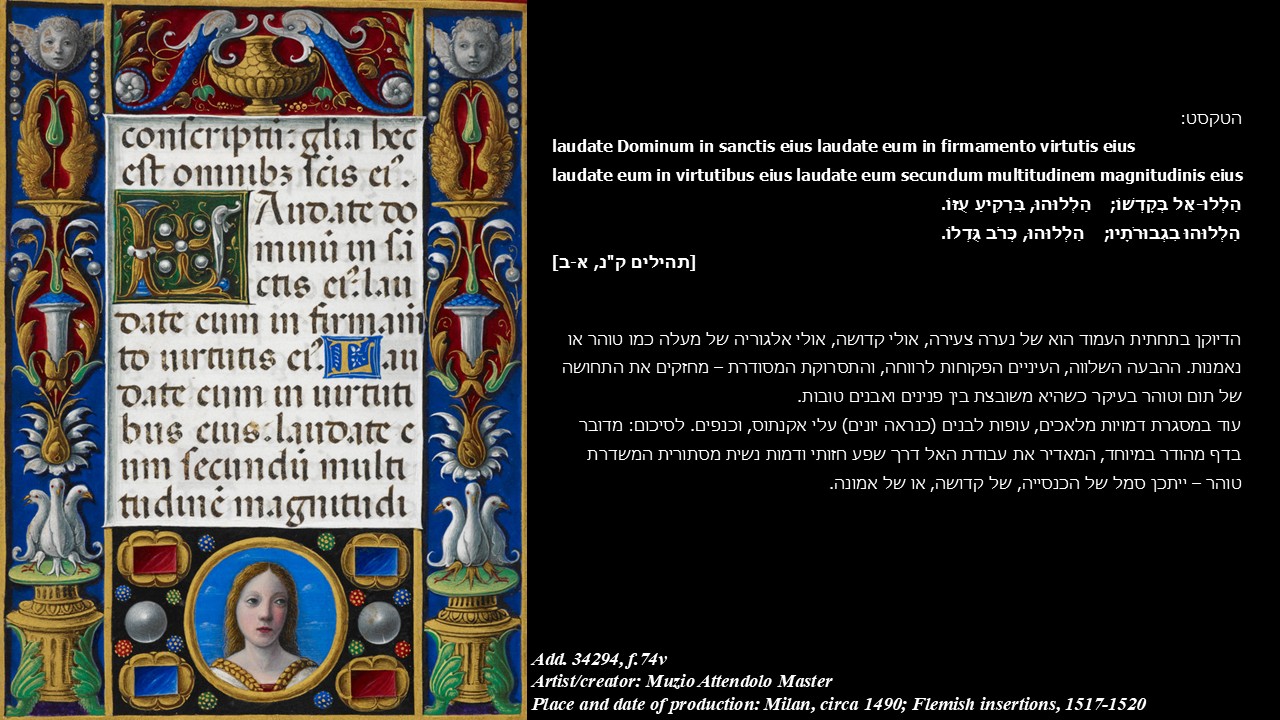 conscriptū: gl̄ia hec
est omnibꝫ scīs ei᾿.
LAudate do
minū in sā
ctis ei᾿: lau
date eum in firmam̄
to uirtutis ei᾿. Lau
date eum in uirtuti
bus eius: laudate e
um secundū multi
tudinē magnitudi
הטקסט:
laudate Dominum in sanctis eius laudate eum in firmamento virtutis eius
laudate eum in virtutibus eius laudate eum secundum multitudinem magnitudinis eius
הַלְלוּ-אֵל בְּקָדְשׁוֹ; הַלְלוּהוּ, בִּרְקִיעַ עֻזּוֹ.
הַלְלוּהוּ בִגְבוּרֹתָיו; הַלְלוּהוּ, כְּרֹב גֻּדְלוֹ.
[תהילים ק"נ, א-ב]
הדיוקן בתחתית העמוד הוא של נערה צעירה, אולי קדושה, אולי אלגוריה של מעלה כמו טוהר או
נאמנות. ההבעה השלווה, העיניים הפקוחות לרווחה, והתסרוקת המסודרת – מחזקים את התחושה
של תום וטוהר בעיקר כשהיא משובצת בין פנינים ואבנים טובות.
עוד במסגרת דמויות מלאכים, עופות לבנים (כנראה יונים) עלי אקנתוס, וכנפים. לסיכום: מדובר
בדף מהודר במיוחד, המאדיר את עבודת האל דרך שפע חזותי ודמות נשית מסתורית המשדרת
טוהר – ייתכן סמל של הכנסייה, של קדושה, או של אמונה.
Add. 34294, f.74v
Artist/creator: Muzio Attendolo Master
Place and date of production: Milan, circa 1490; Flemish insertions, 1517-1520